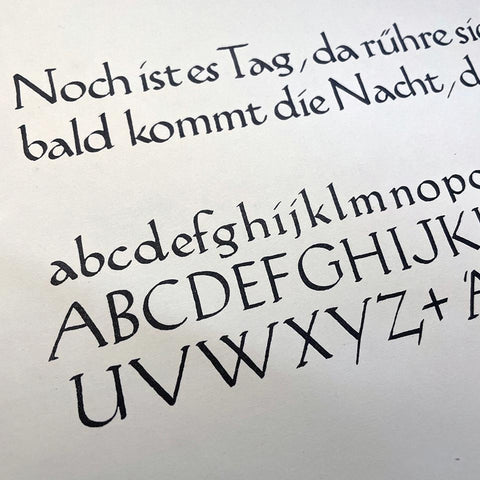 Noch ist es Tag, da rühre sic
bald kommt die Nacht, d
abcdefghijklmnopq
ABCDEFGHIJK
UVWXYZ+ Ä